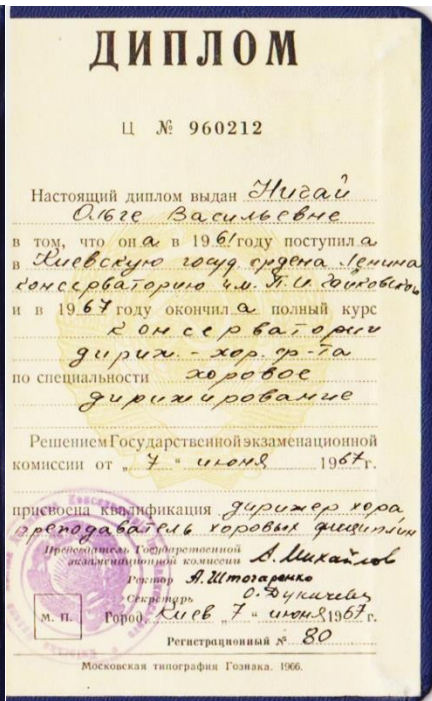 ДИПЛОМ
Ц № 960212
Настоящий диплом выдан Нигай
Ольге Васильевне
в том, что она в 1961 году поступила
в Киевскую госуд. ордена Ленина
консерваторию им. П. И. Чайковского
и в 1967 году окончила полный курс
консерватории
дириж.-хор. ф-та
по специальности хоровое
дирижирование
Решением Государственной экзаменационной
комиссии от „7“ июня 1967 г.
присвоена квалификация дирижер хора
преподаватель хоровых дисциплин
Председатель Государственной
экзаменационной комиссии А. Михайлов
Ректор А. Штогаренко
Секретарь О.
М. П. Город Киев „7“ июня 1967 г.
Регистрационный № 80
Московская типография Гознака. 1966.